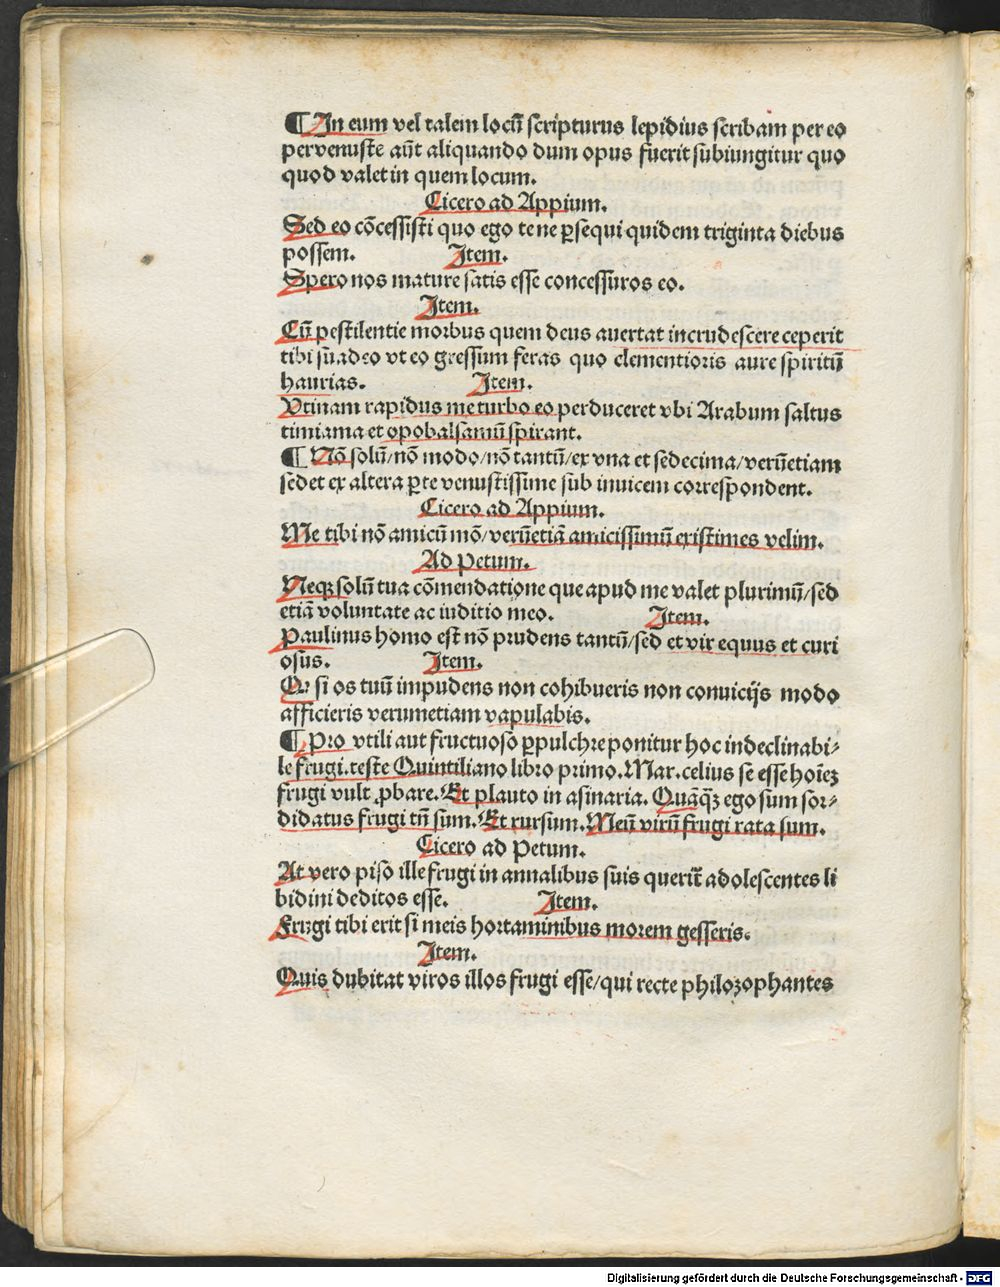 ¶ In eum vel talem locū scripturus lepidius scribam per eo
pervenuste aūt aliquando dum opus fuerit subiungitur quo
quod valet in quem locum.
Cicero ad Appium.
Sed eo cōcessisti quo ego te ne ꝑsequi quidem triginta diebus
possem. Item.
Spero nos mature satis esse concessuros eo.
Item.
Cū pestilentie morbus quem deus avertat incrudescere ceperit
tibi suadeo vt eo gressum feras quo clementioris aure spiritū
haurias. Item.
Vtinam rapidus me turbo eo perduceret vbi Arabum saltus
timiama et opobalsamū spirant.
¶ Nō solū/nō modo/nō tantū/ex vna et sedecima/verūetiam
sedet ex altera ꝑte venustissime sub invicem correspondent.
Cicero ad Appium.
Me tibi nō amicū mō/verūetiā amicissimū existimes velim.
Ad Petum.
Neqꝫ solū tua cōmendatione que apud me valet plurimū/sed
etiā voluntate ac iuditio meo. Item.
Paulinus homo est nō prudens tantū/sed et vir equus et curi
osus. Item.
Qr si os tuū impudens non cohibueris non convicijs modo
afficieris verumetiam vapulabis.
¶ Pro vtili aut fructuoso ꝑpulchre ponitur hoc indeclinabi⸗
le frugi.teste Quintiliano libro primo.Mar.celius se esse hoīeꝫ
frugi vult ꝓbare.Et plauto in asinaria. Quāqꝫ ego sum sor⸗
didatus frugi tn̄ sum.Et rursum.Meū virū frugi rata sum.
Cicero ad Petum.
At vero piso ille frugi in annalibus suis querit̄ adolescentes li
bidini deditos esse. Item.
Frugi tibi erit si meis hortaminibus morem gesseris.
Item.
Quis dubitat viros illos frugi esse/qui recte philozophantes
Digitalisierung gefördert durch die Deutsche Forschungsgemeinschaft - DFG